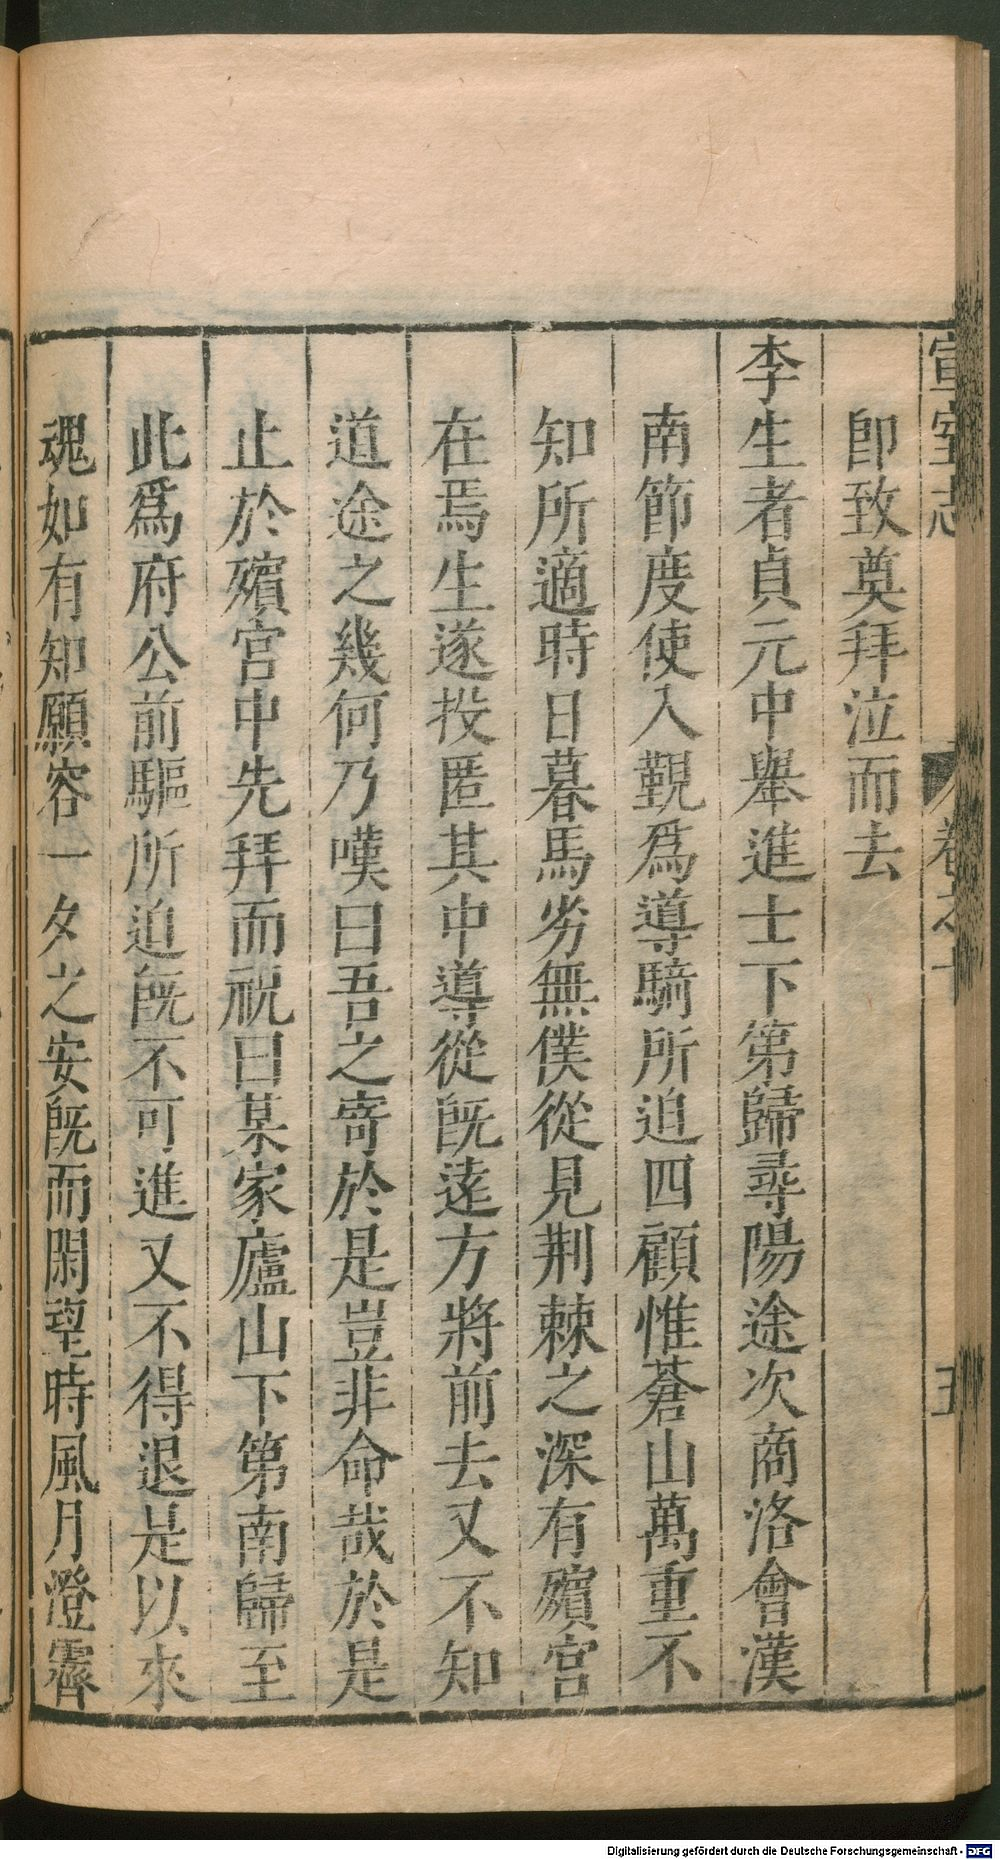 宣室志 卷之十 五
卽致奠拜泣而去
李生者貞元中舉進士下第歸尋陽途次商洛會漢
南節度使入覲爲導騎所迫四顧惟蒼山萬重不
知所適時日暮馬劣無僕從見荆棘之深有殯宮
在焉生遂投匿其中導從旣遠方將前去又不知
道途之幾何乃嘆曰吾之寄於是豈非命哉於是
止於殯宮中先拜而祝曰某家廬山下第南歸至
此爲府公前驅所迫旣不可進又不得退是以來
魂如有知願容一夕之安旣而閑望時風月澄霽
Digitalisierung gefördert durch die Deutsche Forschungsgemeinschaft - DFG